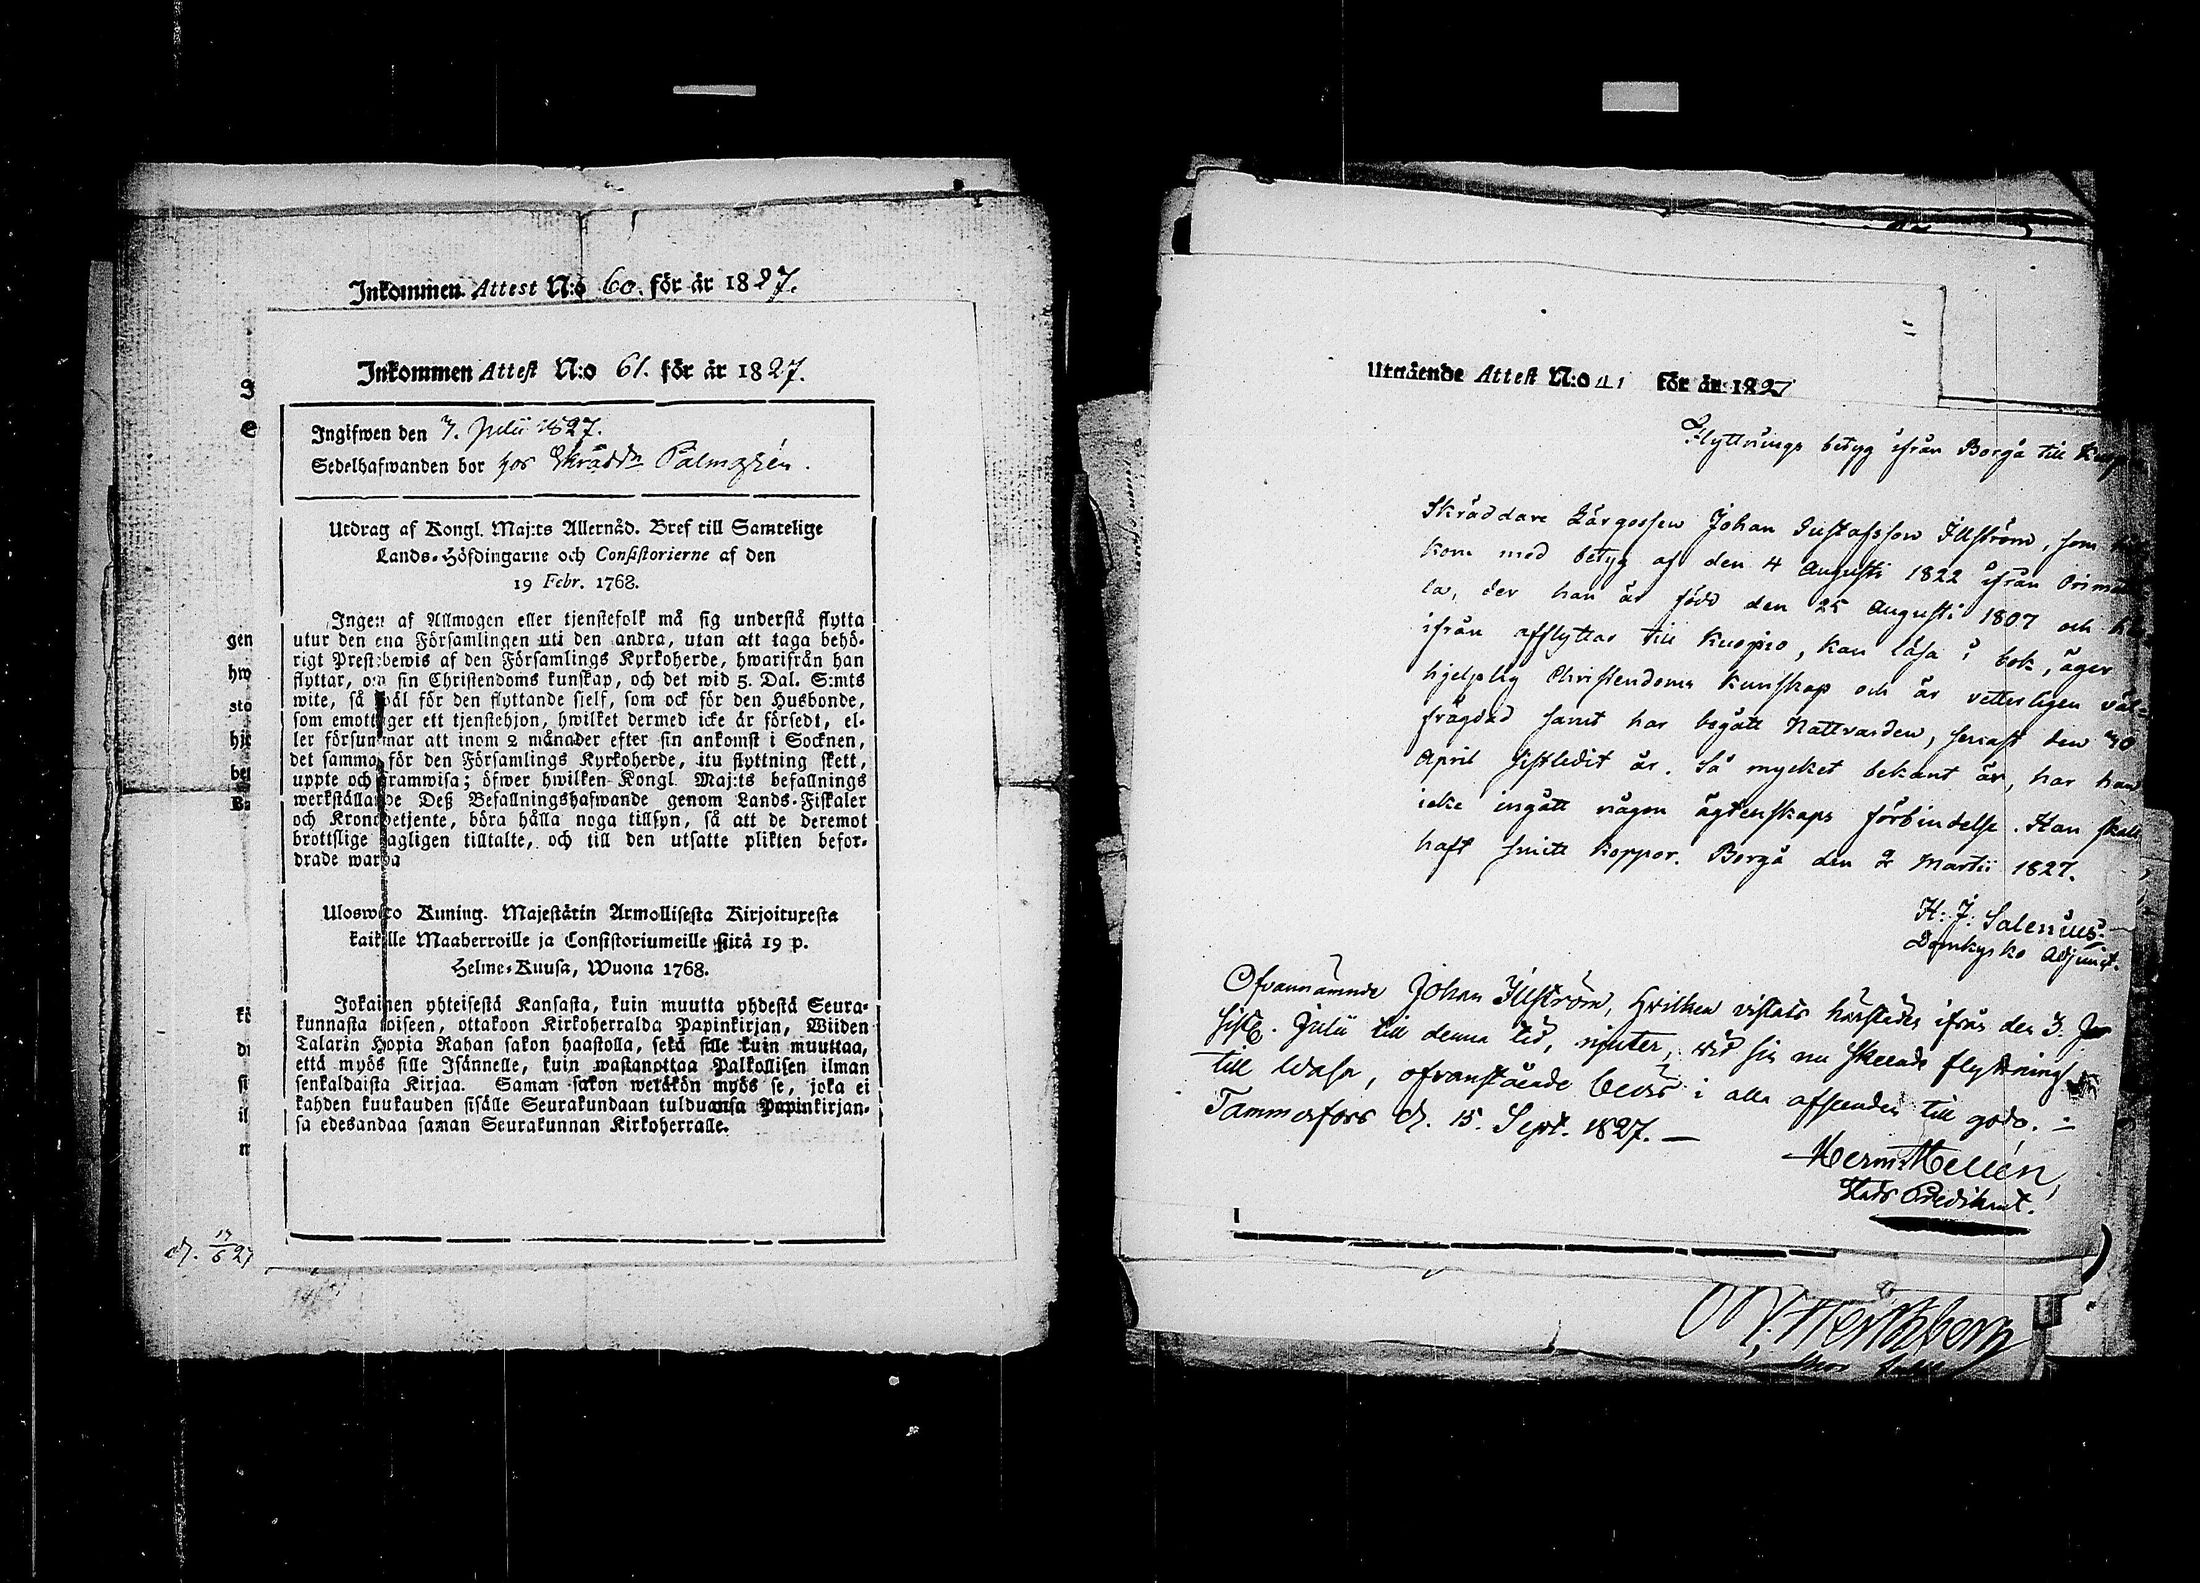 Inkommen Attest N:o 60. för år 1827.
Inkommen Attest N:o 61. för år 1827.
Ingifwen den 7. Julii 1827.
Sedelhafwanden bor hos Skrädd:n Palmqvén.
Utdrag af Kongl. Maj:ts Allernåd. Bref till Samtelige
Lands-Höfdingarne och Consistorierne af den
19 Febr. 1768.
Ingen af Allmogen eller tjenstefolk må sig understå flytta
utur den ena Församlingen uti den andra, utan att taga behö-
rigt Prest-bewis af den Församlings Kyrkoherde, hwarifrån han
flyttar, om sin Christendoms kunskap, och det wid 5. Dal. S:mts
wite, så wäl för den flyttande sielf, som ock för den Husbonde,
som emottager ett tjenstehjon, hwilket dermed icke är försedt, el-
ler försummar att inom 2 månader efter sin ankomst i Socknen,
det samma för den Församlings Kyrkoherde, itu flyttning skett,
uppte och framwisa; öfwer hwilken Kongl. Maj:ts befallnings
werkställande Deß Befallningshafwande genom Lands-Fiskaler
och Kronobetjente, böra hålla noga tillsyn, så att de deremot
brottslige lagligen tilltalte, och till den utsatte plikten befor-
drade warda
Uloswéto Kuning. Majestätin Armollisesta Kirjoituxesta
kaikille Maaherroille ja Consistoriumeille siitä 19 p.
Helme-Kuusa, Wuona 1768.
Jokainen yhteisestä Kansasta, kuin muutta yhdestä Seura-
kunnasta toiseen, ottakoon Kirkoherralda Papinkirjan, Wiiden
Talarin Hopia Rahan sakon haastolla, sekä sille kuin muuttaa,
että myös sille Isännelle, kuin wastanottaa Palkollisen ilman
senkaldaista Kirjaa. Saman sakon wetäkön myös se, joka ei
kahden kuukauden sisälle Seurakundaan tulduansa Papinkirjan-
sa edesandaa saman Seurakunnan Kirkoherralle.
gen
hw
sto
hje
bet
d. 17/6 27
Utgående Attest N:o 41 för år 1827
Flyttnings betyg ifrån Borgå till
Skräddare Lärgossen Johan Gustafsson Illström, som
kom med betyg af den 4 Augusti 1822 ifrån Orimatt
la, der han är född den 25 Augusti 1807 och
ifrån afflyttar till Kuopio, kan läsa i bok, äger
hjelplig Christendoms kunskap och är vetterligen väl-
frägdad samt har begått Nattvarden, senast den 30
April sistledit år. Så mycket bekant är, har han
icke ingått någon ägtenskaps förbindelse. Han skall
haft smitt koppor. Borgå den 2 Martii 1827.
H: J. Salenius.
Domkyrko Adjunct.
Ofvannämnde Johan Illström, hvilken vistats härstädes ifrån den 3.
sistl. Julii till denna tid, njuter, wid sin nu skeende flyttning
till Wasa, ofvanstående bevis i alla afseenden till godo. –
Tammerfors d. 15. Sept. 1827. –
Herm: Hellén,
Stads Predikant.